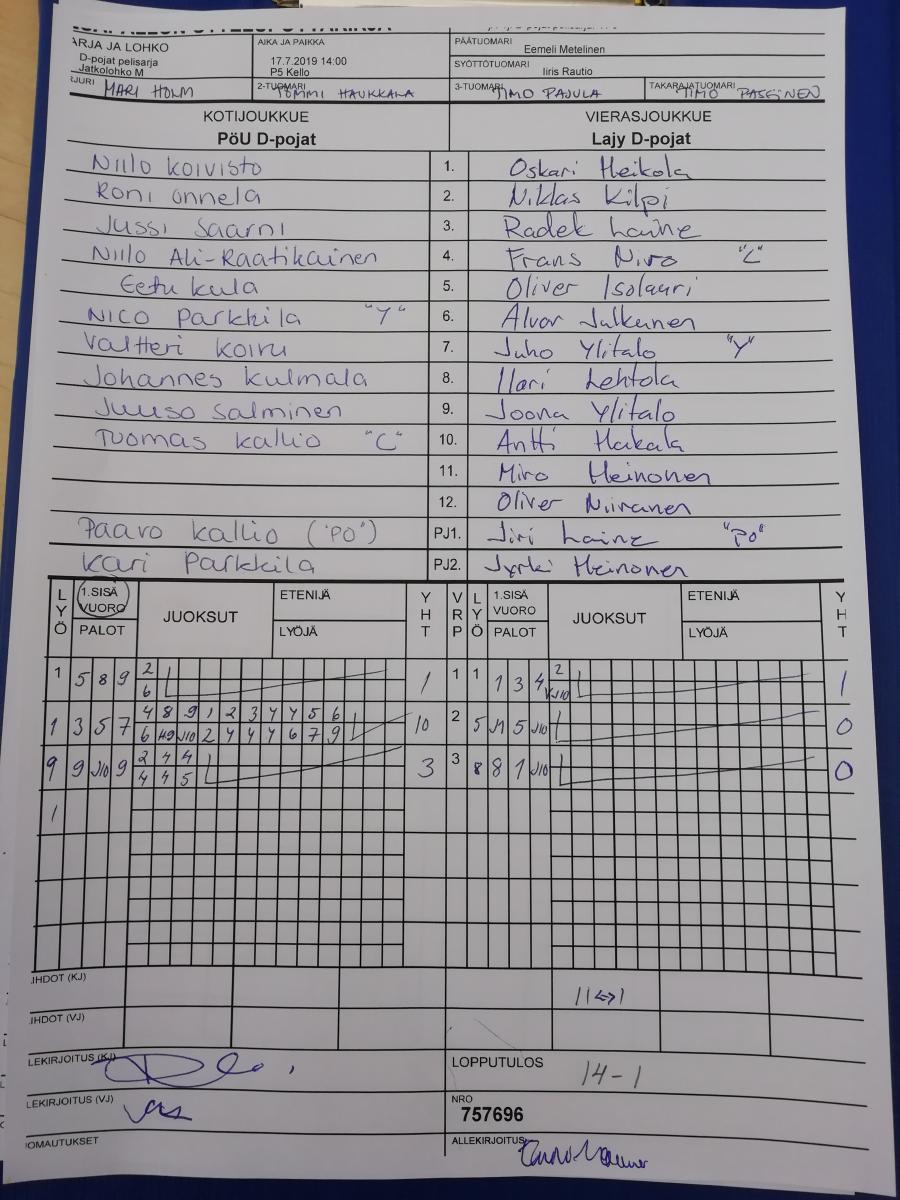 ARJA JA LOHKO
D-pojat pelisarja
Jatkolohko M
AIKA JA PAIKKA
17.7.2019 14:00
P5 Kello
PÄÄTUOMARI
Eemeli Metelinen
SYÖTTÖTUOMARI
Iiris Rautio
MARI HOLM
2-TUOMARI TOMMI HAUKKALA
3-TUOMARI TIMO PAJULA
TAKARAJATUOMARI TIMO PASEINEN
KOTIJOUKKUE
PöU D-pojat
VIERASJOUKKUE
Lajy D-pojat
Niilo Koivisto 1. Oskari Heikola
Roni Onnela 2. Niklas Kilpi
Jussi Saarni 3. Radek Laine
Niilo Ali-Raatikainen 4. Frans Niro "C"
Eetu Kula 5. Oliver Isolauri
Nico Parkkila "Y" 6. Alvar Julkunen
Valtteri Koiru 7. Juho Ylitalo "Y"
Johannes Kulmala 8. Ilari Lehtola
Juuso Salminen 9. Joona Ylitalo
Tuomas Kallio "C" 10. Antti Hakala
11. Miro Heinonen
12. Oliver Niiranen
Paavo Kallio ("PO") PJ1. Jiri Laine "PO"
Kari Parkkila PJ2. Jyrki Heinonen
LYÖ 1.SISÄ VUORO PALOT JUOKSUT ETENIJÄ LYÖJÄ YHT VRP LYÖ 1.SISÄ VUORO PALOT JUOKSUT ETENIJÄ LYÖJÄ YHT
1 5 8 9 2 1 1 1 1 3 4 2 1
6 VJ10
1 3 5 7 4 8 9 1 2 3 4 4 5 6 10 2 5 J1 5 J10 0
6 H9 J10 2 4 4 4 6 7 9
9 9 J10 9 2 4 4 3 3 8 8 1 J10 0
4 4 5
1
IHDOT (KJ)
11<->1
IHDOT (VJ)
LEKIRJOITUS (KJ)
LOPPUTULOS 14-1
LEKIRJOITUS (VJ)
NRO
757696
OMAUTUKSET
ALLEKIRJOITUS